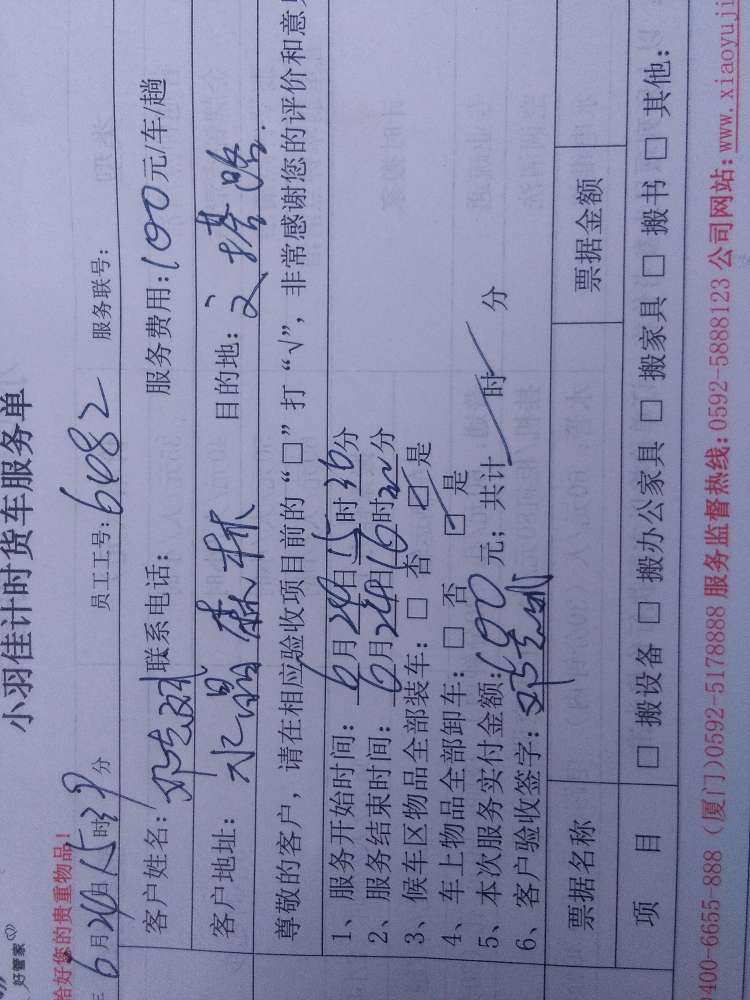 小羽佳计时货车服务单
好管家
恰好您的贵重物品!
6月24日15时29分 员工工号:6482 服务联号:
客户姓名: 联系电话: 服务费用:100元/车/趟
客户地址:水晶森林 目的地:文塔路
尊敬的客户,请在相应验收项目前的“□”打“√”,非常感谢您的评价和意
1、服务开始时间:6月24日15时36分
2、服务结束时间:6月24日16时22分
3、候车区物品全部装车:□ 否 ☑ 是
4、车上物品全部卸车:□ 否 ☑ 是
5、本次服务实付金额:600元;共计 时 分
6、客户验收签字:
票据名称 票据金额
项 目 □ 搬设备 □ 搬办公家具 □ 搬家具 □ 搬书 □ 其他:
400-6655-888(厦门)0592-5178888 服务监督热线:0592-5888123 公司网站:www.xiaoyuji